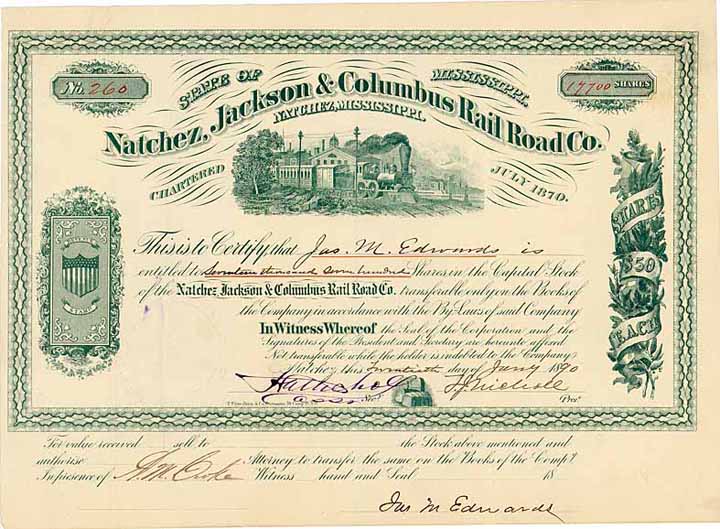 STATE OF MISSISSIPPI.
No. 260
17700 SHARES
Natchez, Jackson & Columbus Rail Road Co.
NATCHEZ, MISSISSIPPI.
CHARTERED JULY 1870.
This is to Certify, that Jas. M. Edwards is
entitled to Seventeen thousand Seven hundred Shares in the Capital Stock
of the Natchez, Jackson & Columbus Rail Road Co. transferable only on the Books of
the Company in accordance with the By-Laws of said Company
In Witness Whereof the Seal of the Corporation and the
Signatures of the President and Secretary are hereunto affixed
Not transferable while the holder is indebted to the Company
Natchez this twentieth day of Jany 1890
Secy.
Pres.
SHARES
$50
EACH
For value received sell to the Stock above mentioned and
authorise Attorney to transfer the same on the Books of the Compy.
In presence of Witness hand and Seal 18
Jas M Edwards